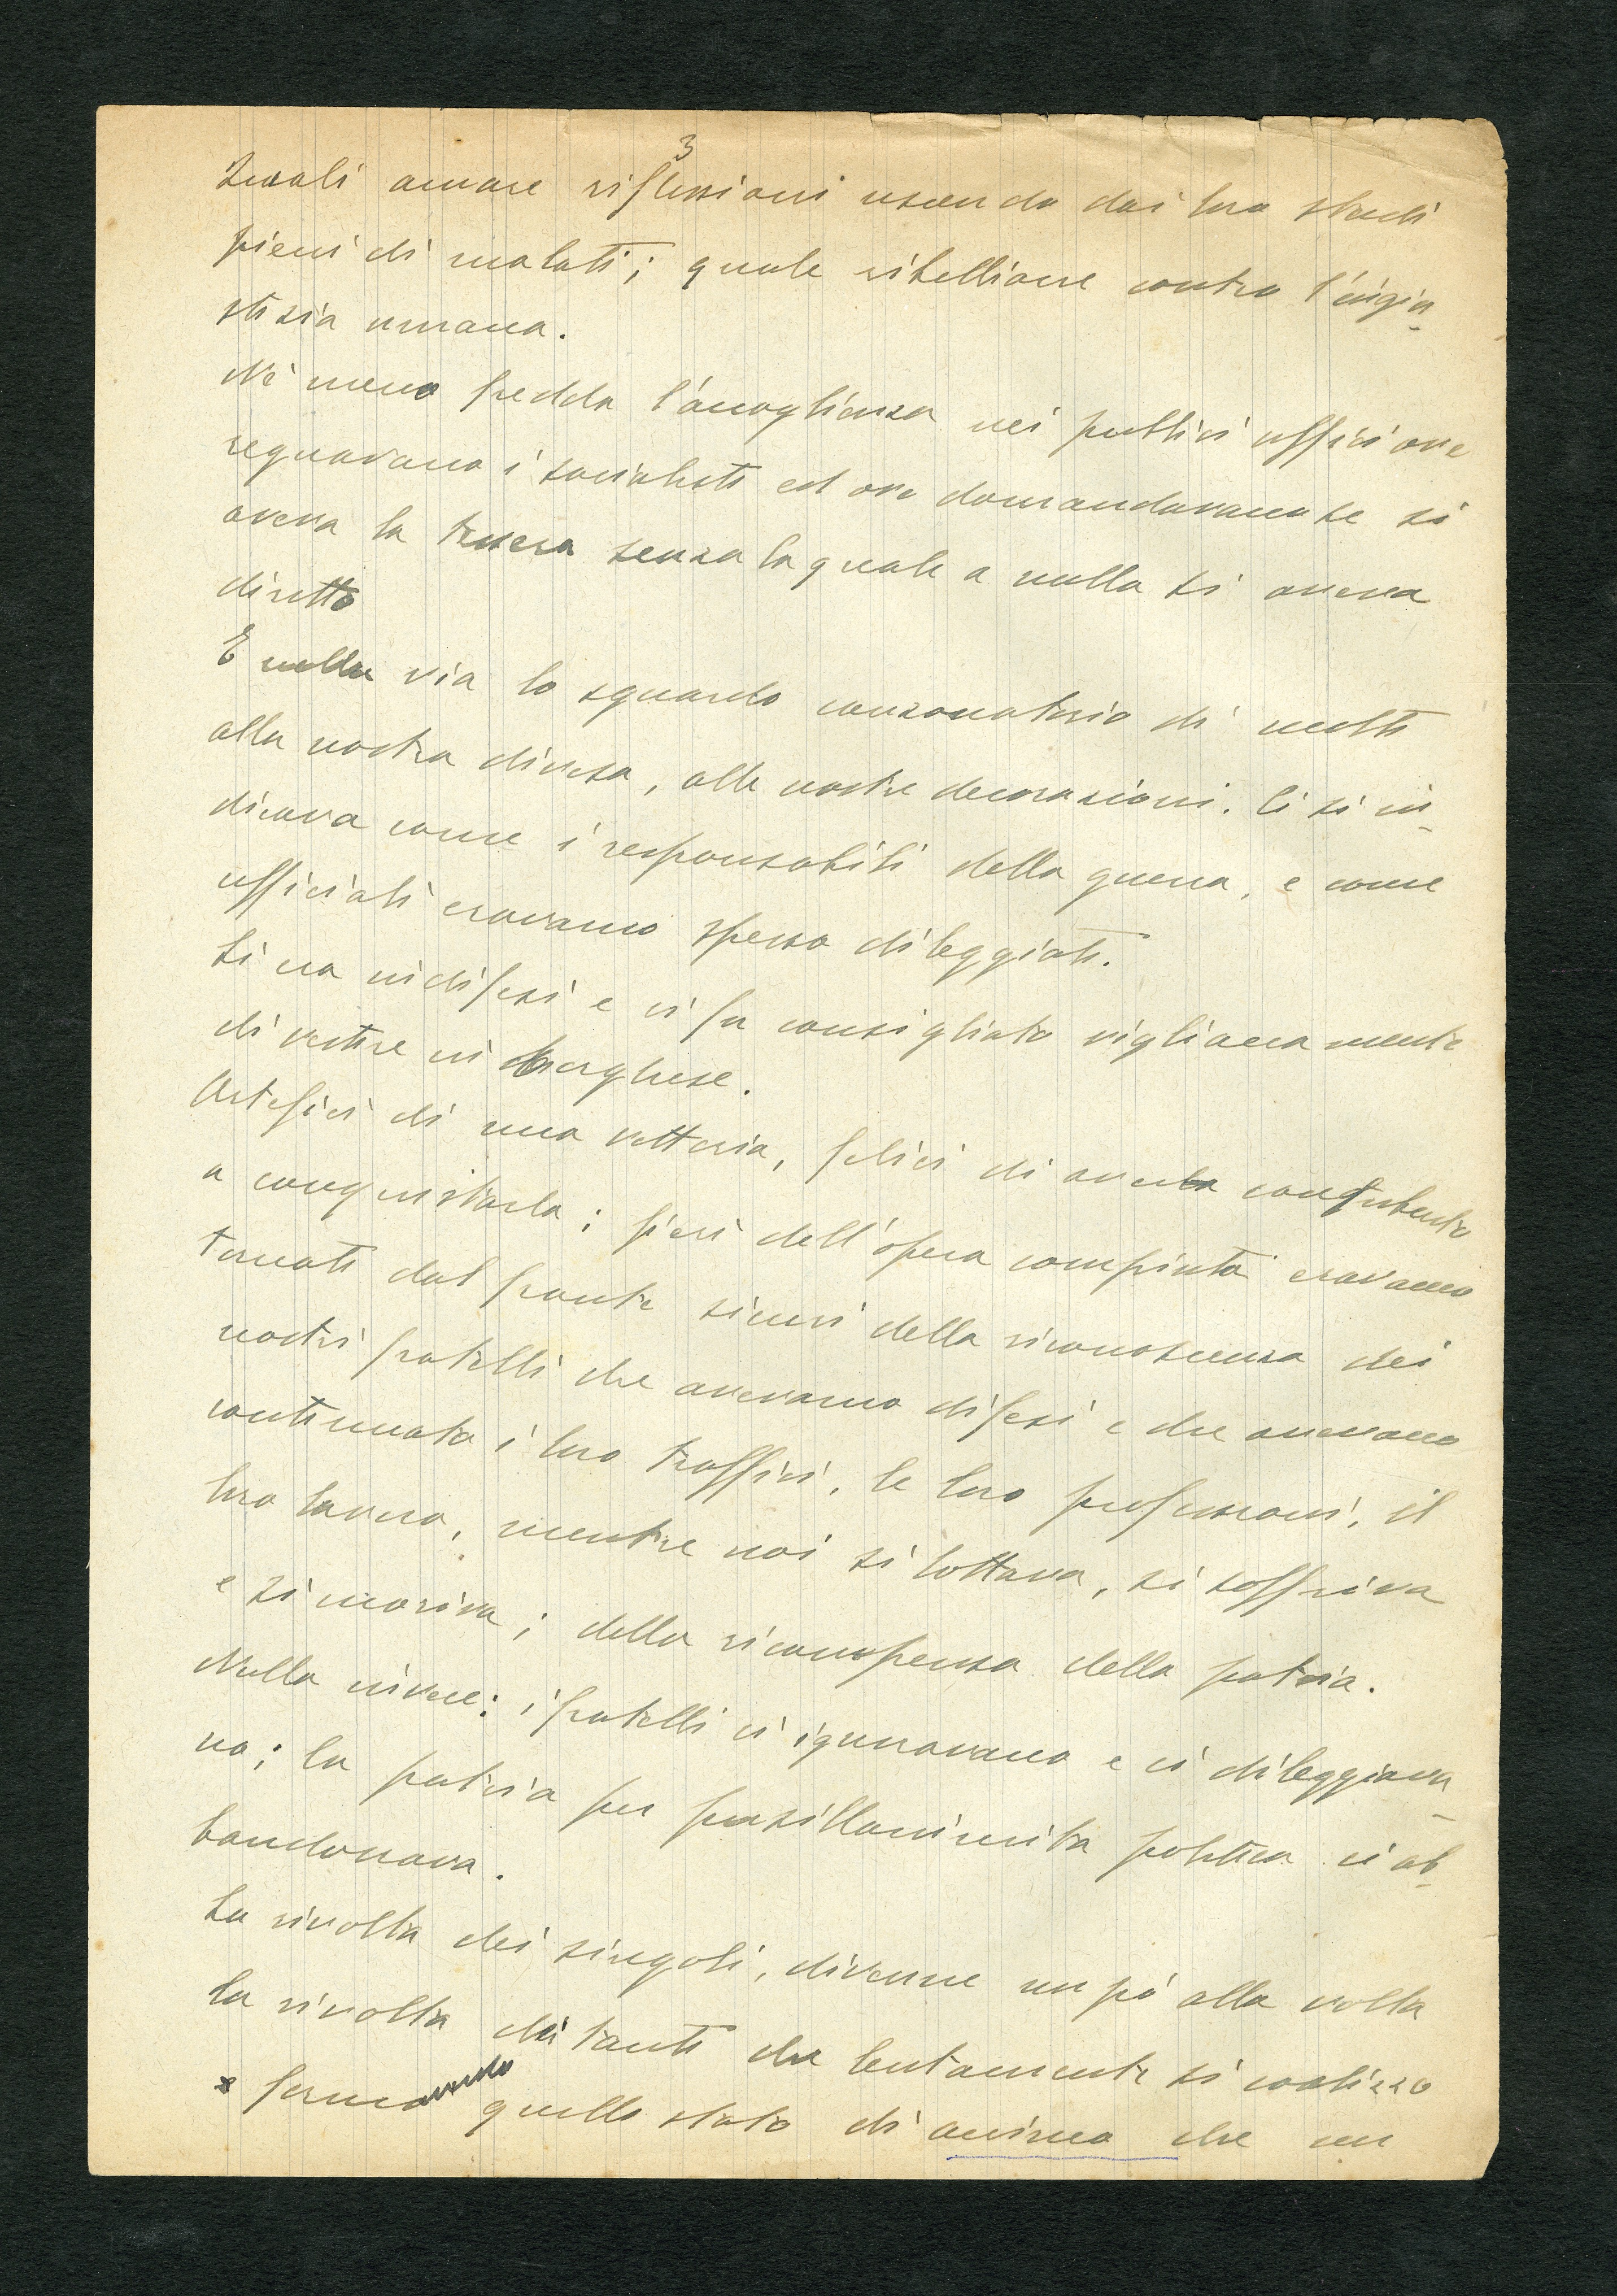 3
Quali amare riflessioni uscendo dai loro studi
pieni di malati; quale ribellione contro l'ingiu_
stizia umana.
Nè meno fredda l'accoglienza nei pubblici uffici ove
regnavano i socialisti ed ove domandavano se si
aveva la tessera senza la quale a nulla si aveva
diritto
E nella via lo sguardo canzonatorio di molti
alla nostra divisa, alle nostre decorazioni. Ci si in_
dicava come i responsabili della guerra, e come
ufficiali eravamo spesso dileggiati.
Si era indifesi e ci fu consigliato vigliaccamente
di vestire in borghese.
Artefici di una vittoria, felici di aver contribuito
a conquistarla; fieri dell'opera compiuta eravamo
tornati dal fronte sicuri della riconoscenza dei
nostri fratelli che avevamo difesi e che avevano
continuato i loro traffici, le loro professioni, il
loro lavoro, mentre noi si lottava, si soffriva
e si moriva; della ricompensa della patria.
Nulla invece: i fratelli ci ignoravano e ci dileggiava_
no; la patria per pusillanimità politica ci ab_
bandonava.
La rivolta dei singoli, divenne un pó alla volta
la rivolta di tanti che lentamente si coalizzò
formando quello stato di animo che un